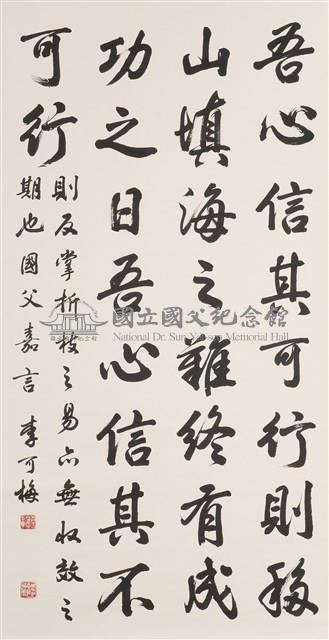 吾心信其可行則移
山填海之難終有成
功之日吾心信其不
可行
則反掌折枝之易亦無收效之
期也國父嘉言 李可梅
國立國父紀念館
National Dr. Sun Yat-sen Memorial Hall